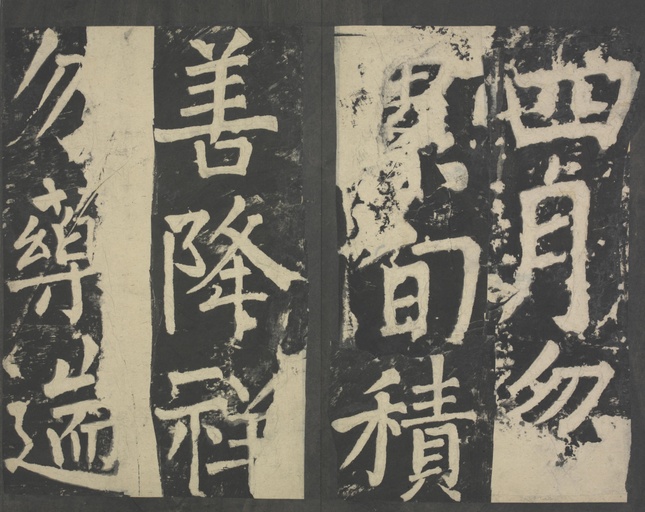 四月勿
累旬積
善降祥
勿藥遄